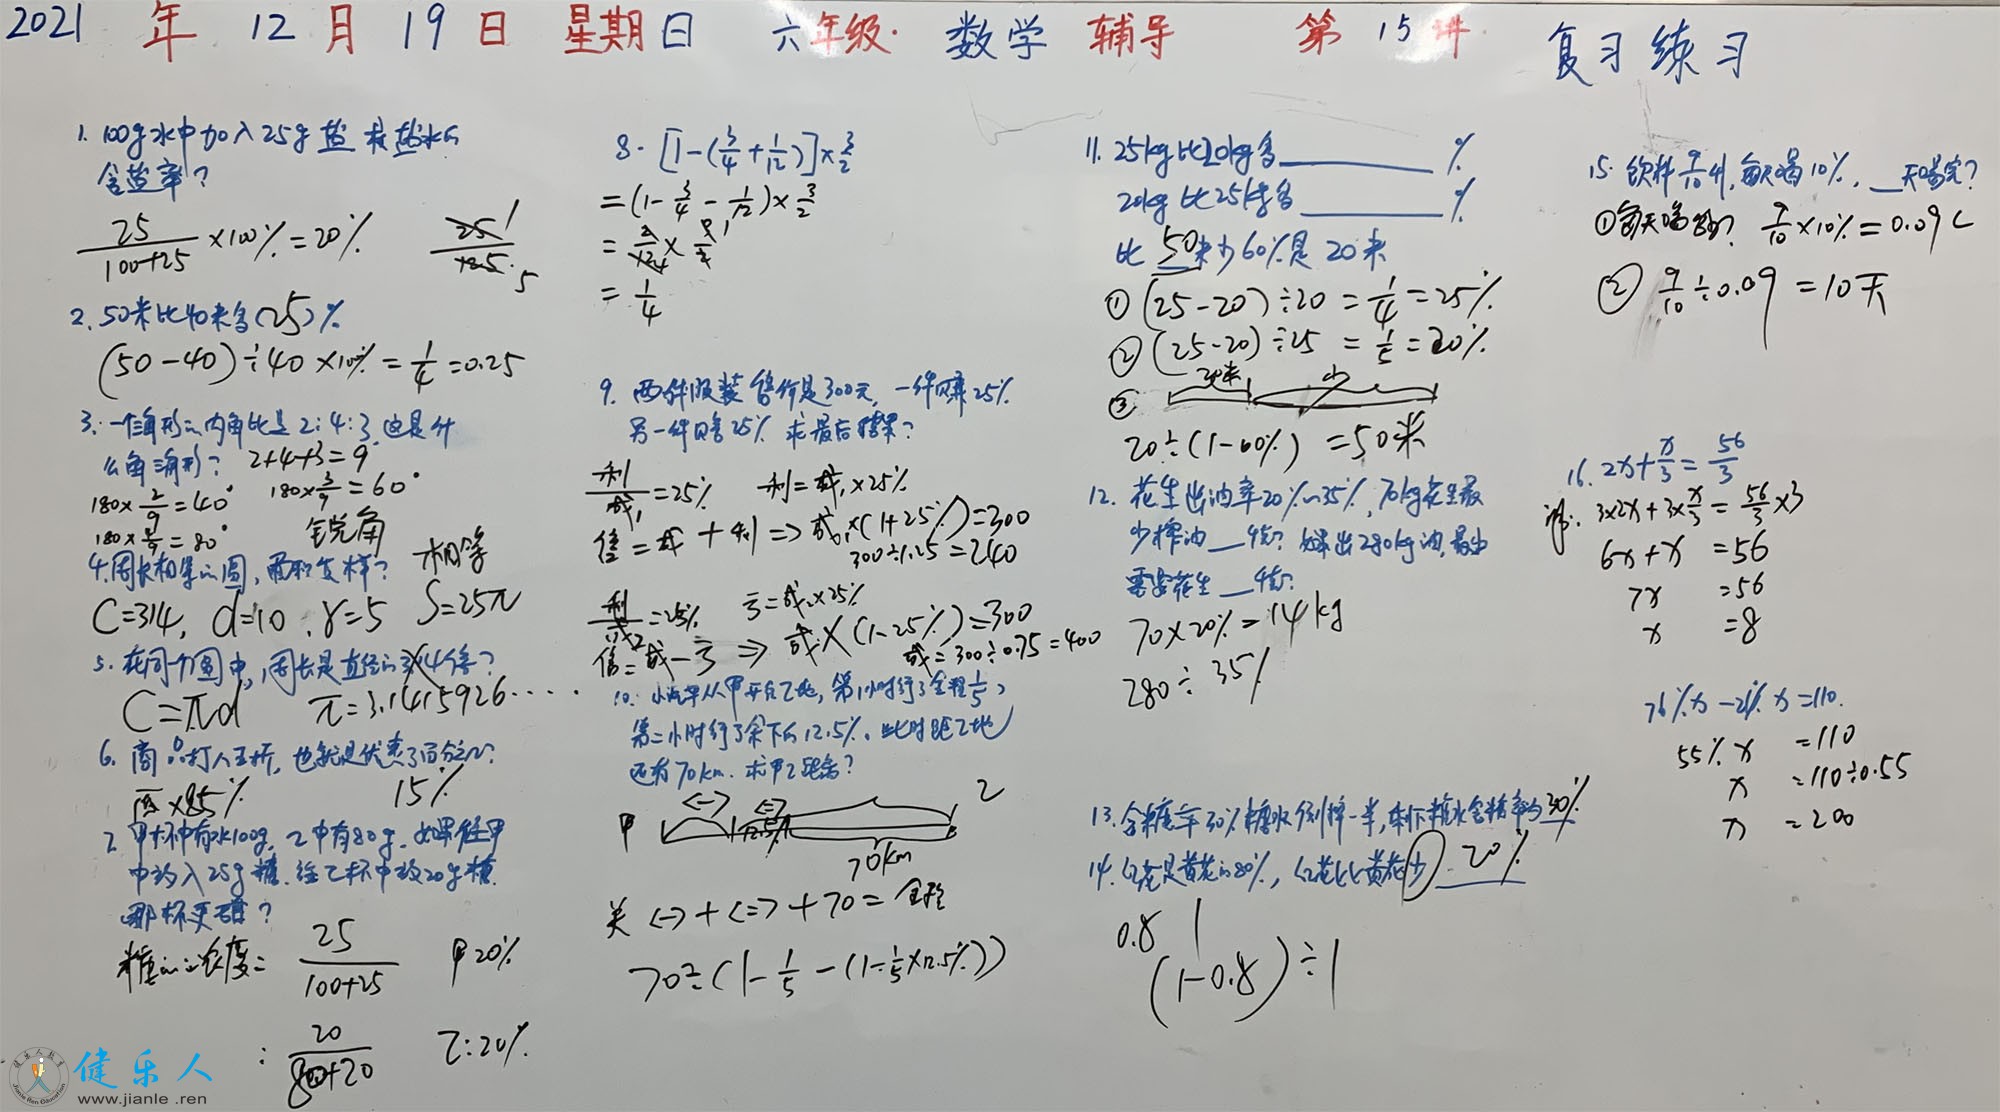 2021 年 12 月 19 日 星期日 六年级 · 数学 辅导 第 15 讲 复习练习
1. 100g水中加入25g盐 求盐水的
含盐率?
25/(100+25) ×100% = 20%
25 1
125 5
2. 50米比40米多(25)%
(50-40)÷40×100% = 1/4 = 0.25
3. 一个三角形的内角比是2:4:3,这是什
么角三角形? 2+4+3=9
180×2/9=40° 180×3/9=60°
180×4/9=80° 锐角
4. 周长相等的圆,面积怎样? 相等
C=314, d=10, r=5 S=25π
5. 在同一个圆中,周长是直径的3.14倍?
C=πd π=3.1415926·····
6. 商品打八五折,也就是优惠了百分之几?
×85% 15%
7. 甲杯中有水100g, 乙中有80g. 如果往甲
中放入25g糖, 给乙杯中放20g糖.
哪杯更甜?
糖的浓度: 25/(100+25) 甲20%
: 20/(80+20) 乙:20%
8. [1-(3/4+1/12)]×3/2
=(1-3/4-1/12)×3/2
=
=1/4
9. 两件服装售价是300元, 一件赚25%
另一件亏25% 求最后结果?
利/成1=25% 利=成1×25%
售=成+利 ⇒ 成1×(1+25%)=300
300÷1.25=240
成2=25% 亏=成2×25%
售=成-亏 ⇒ 成×(1-25%)=300
成=300÷0.75=400
10. 小汽车从甲开往乙地, 第1小时行了全程1/5,
第二小时行了余下的12.5%. 此时距乙地
还有70km. 求甲乙距离?
甲 12.5% 乙
70km
关 <-> + <=> + 70 = 全程
70÷(1-1/5-(1-1/5×12.5%))
11. 25kg比20kg多______%
20kg比25kg______%
比50米少60%是20米
① (25-20)÷20=1/4=25%
② (25-20)÷25=1/5=20%
③ 20米 少
20÷(1-60%)=50米
12. 花生出油率20%~35%, 70kg花生最
少榨油__千克? 如果出280kg油,最少
需要花生__千克?
70×20%=14kg
280÷35%
13. 含糖率30%糖水倒掉一半,剩下糖水含糖率为30%
14. 红花是黄花的80%, 红花比黄花少 20%
0.8 1
(1-0.8)÷1
15. 饮料9/10升, 每天喝10%, __天喝完?
①每天喝多少? 9/10×10%=0.09L
② 9/10÷0.09=10天
16. 2x+x/3=56/3
解: 3×2x+3×x/3=56/3×3
6x+x =56
7x =56
x =8
76%x-21%x=110.
55%x =110
x =110÷0.55
x =200
健乐人
www.jianle.ren